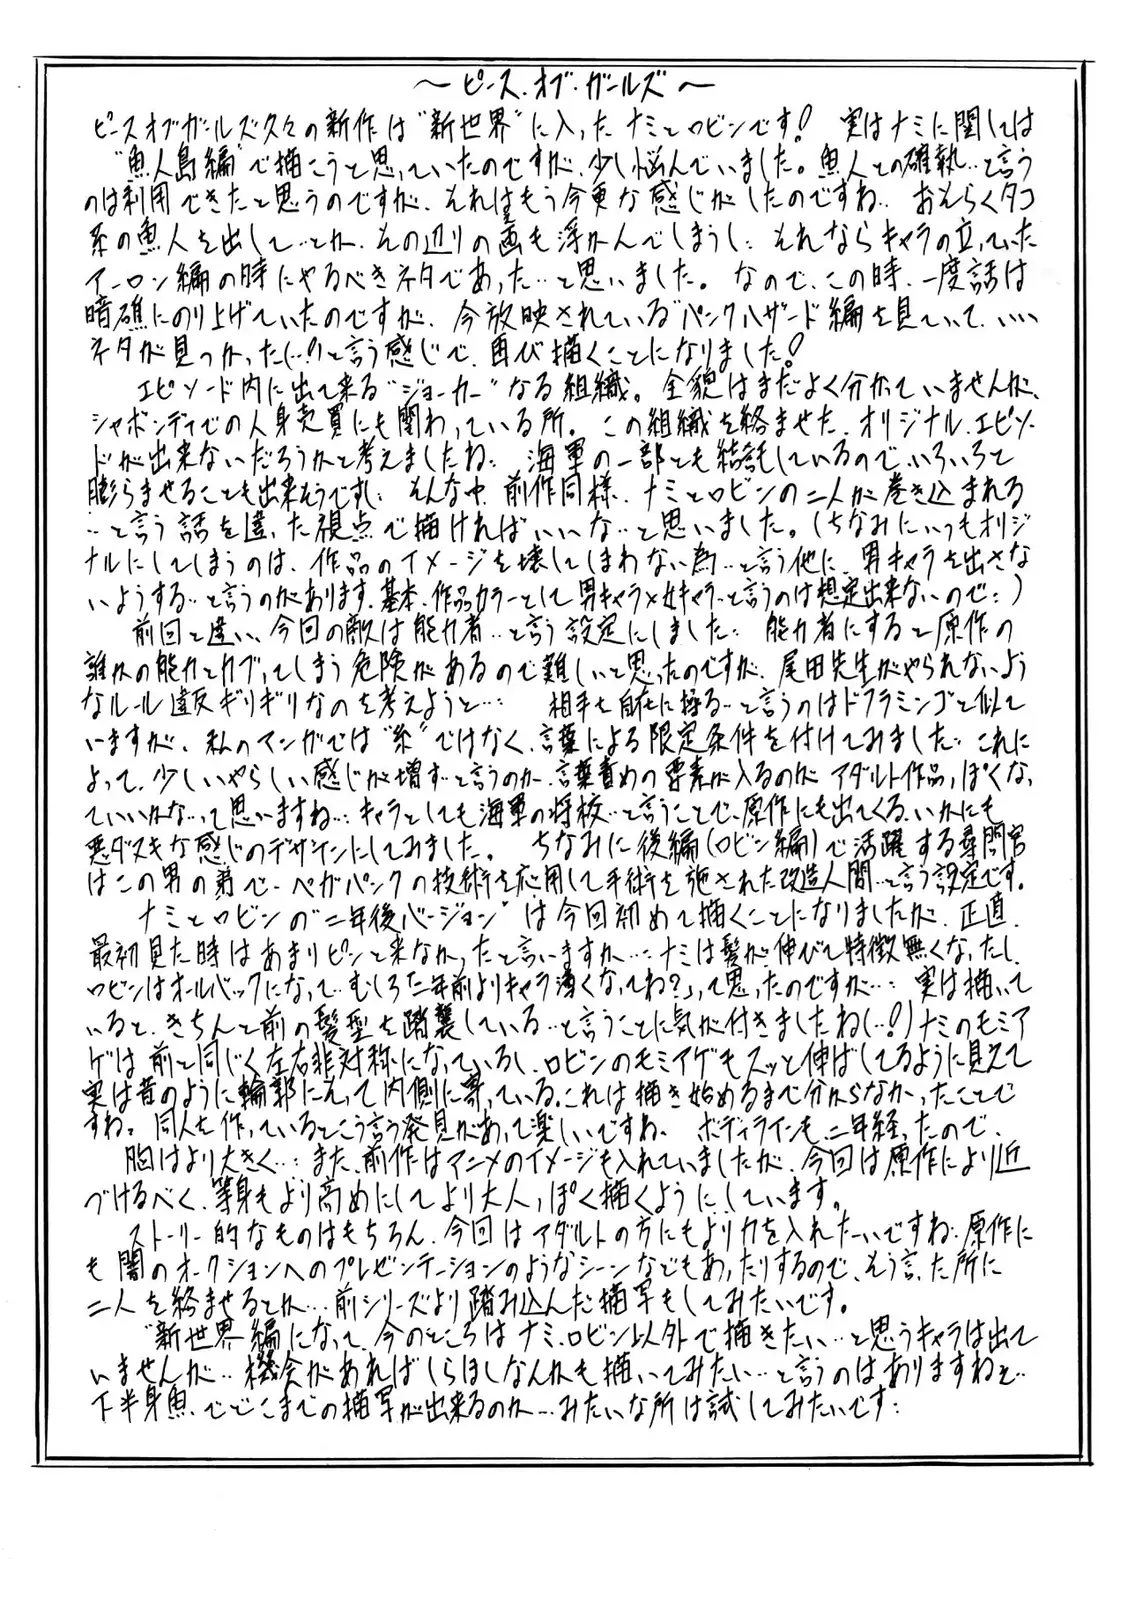 ～ピース・オブ・ガールズ～
ピースオブガールズ久々の新作は“新世界”に入ったナミとロビンです！　実はナミに関しては
“魚人島編”で描こうと思っていたのですが、少し悩んでいました。魚人との確執…と言う
のは利用できたと思うのですが、それはもう今更な感じがしたのですね…　おそらくタコ
系の魚人を出して…とか、その辺りの画も浮かんでしまうし…それならキャラの立っていた
アーロン編の時にやるべきネタであった…と思いました。　なので、この時、一度話は
暗礁にのり上げていたのですが、今放映されている“パンクハザード編”を見ていて、いい
ネタが見つかった(…!?)と言う感じで、再び描くことになりました！
エピソード内に出て来る“ジョーカー”なる組織。全貌はまだよく分かっていませんが、
シャボンディでの人身売買にも関わっている所。この組織を絡ませた、オリジナル・エピソー
ドが出来ないだろうかと考えましたね…　海軍の一部とも結託しているので、いろいろと
膨らませることも出来そうですし…　そんな中、前作同様、ナミとロビンの二人が巻き込まれる
…と言う話を違った視点で描ければいいな…と思いました。（ちなみにいつもオリジ
ナルにしてしまうのは、作品のイメージを壊してしまわない為…と言う他に、男キャラを出さな
いようする…と言うのがあります。基本、作品カラーとして男キャラ×女キャラ…と言うのは想定出来ないので…）
前回と違い、今回の敵は能力者…と言う設定にしました…　能力者にすると原作の
誰かの能力とカブってしまう危険があるので難しいと思ったのですが、尾田先生がやられないよう
なルール違反ギリギリなのを考えようと…　相手を自在に操る…と言うのはドフラミンゴと似て
いますが、私のマンガでは“糸”ではなく、言葉による限定条件を付けてみました…　これに
よって、少しいやらしい感じが増す…と言うのか、言葉責めの要素が入るのが、アダルト作品っぽくなっ
ていいかな…って思いますね…　キャラとしても海軍の将校…と言うことで、原作にも出てくる、いかにも
悪ダヌキな感じのデザインにしてみました。　ちなみに後編（ロビン編）で活躍する尋問官
はこの男の弟で、ベガパンクの技術を応用して手術を施された改造人間…と言う設定です。
ナミとロビンの“二年後バージョン”は今回初めて描くことになりましたが、正直、
最初見た時はあまりピンと来なかったと言いますか…　ナミは髪が伸びて特徴無くなったし、
ロビンはオールバックになって…むしろ「二年前よりキャラ薄くなってね？」って思ったのですが…　実は描いて
いると、きちんと前の髪型を踏襲している…と言うことに気が付きましたね(…!)ナミのモミア
ゲは前と同じく左右非対称になっているし、ロビンのモミアゲもスッと伸ばしてるように見えて
実は昔のように輪郭にそって内側に寄っている。これは描き始めるまで分からなかったことで
すね。同人を作っているとこう言う発見があって楽しいですね。　ボディラインも、二年経ったので、
胸はより大きく…　また、前作はアニメのイメージも入れていましたが、今回は原作により近
づけるべく、等身もより高めにしてより大人っぽく描くようにしています。
ストーリー的なものはもちろん、今回はアダルトの方にもより力を入れたいですね。原作に
も闇のオークションへのプレゼンテーションのようなシーンなどもあったりするので、そう言った所に
二人を絡ませるとか…前シリーズより踏み込んだ描写もしてみたいです。
“新世界編”になって、今のところはナミ、ロビン以外で描きたい…と思うキャラは出て
いませんが…機会があればしらほしなんかも描いてみたい…と言うのはありますねぇ…
下半身魚、でどこまでの描写が出来るのか…みたいな所は試してみたいです…